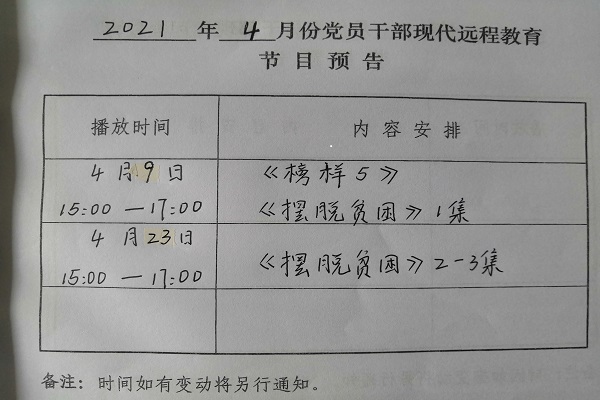 2021年4月份党员干部现代远程教育
节目预告
播放时间 内容安排
4月9日 《榜样5》
15:00—17:00 《摆脱贫困》1集
4月23日
15:00—17:00 《摆脱贫困》2-3集
备注：时间如有变动将另行通知。